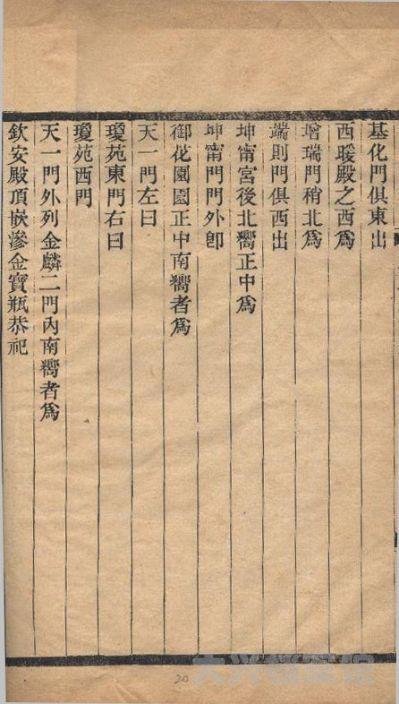 基化門俱東出
西暖殿之西為
增瑞門稍北為
端則門俱西出
坤甯宮後北嚮正中為
坤甯門門外卽
御花園園正中南嚮者為
天一門左曰
瓊苑東門右曰
瓊苑西門
天一門外列金麟二門內南嚮者為
欽安殿頂嵌滲金寶瓶恭祀
20